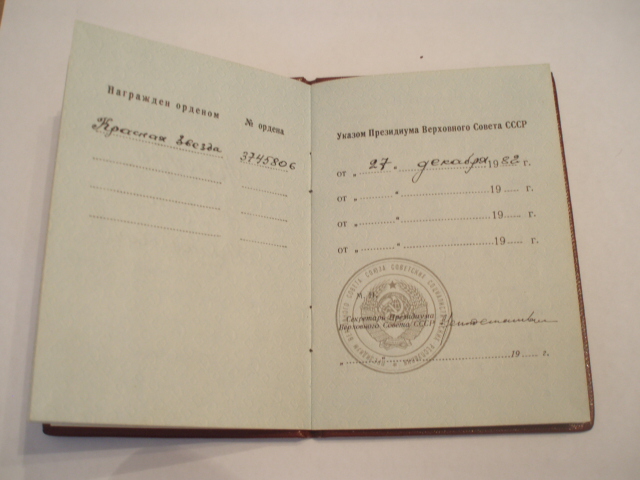 Награжден орденом № ордена
Красная Звезда 3745806
Указом Президиума Верховного Совета СССР
от „ 27. декабря 1982 г.
от „ " 19 г.
от „ " 19 г.
от „ " 19 г.
М. П.
Секретарь Президиума
Верховного Совета СССР
„ " 19 г.